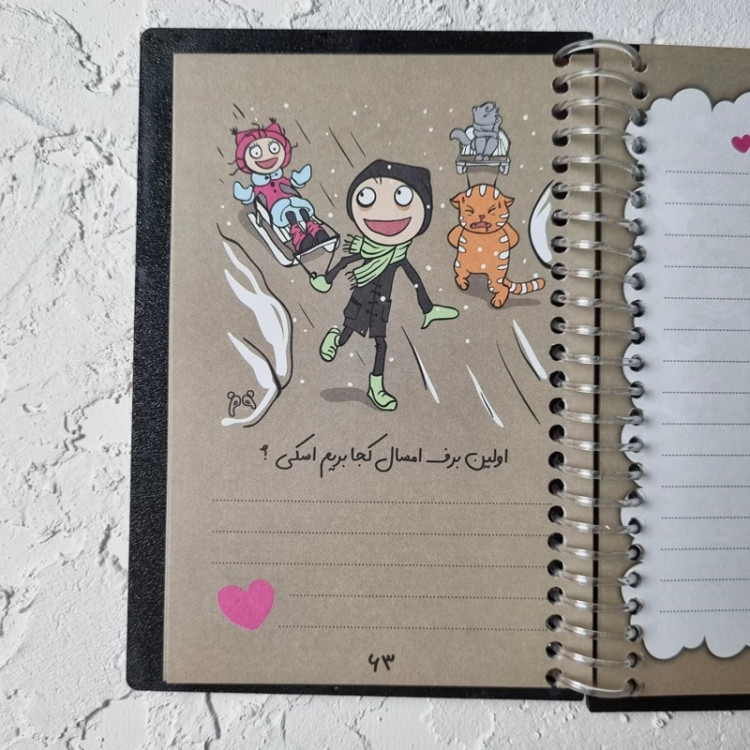 اولین برف امسال کجا بریم اسکی ؟
۶۳